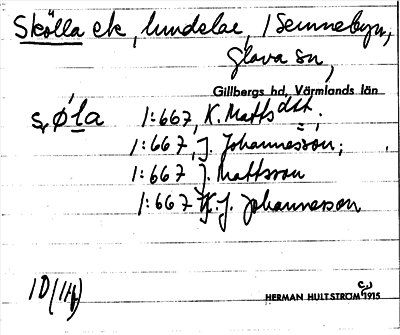 Skölla ek, lundelar, / Semneby,
Glava sn,
Gillbergs hd, Värmlands län
1:667, K. Mattsdtt;
1:667, J. Johannesson;
1:667 J. Mattsson
1:667 K. J. Johannesson
10
HERMAN HULTSTRÖM 1915